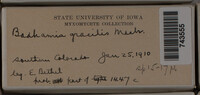 STATE UNIVERSITY OF IOWA
MYXOMYCETE COLLECTION
Badhamia gracilis Macbr.
southern Colorado Jan 25, 1910
leg. E. Bethel
part of type 1647c
743555